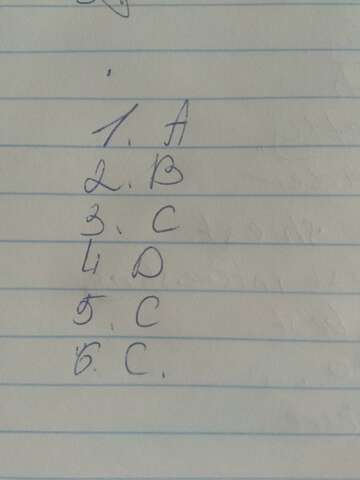 1. A
2. B
3. C
4. D
5. C
6. C.